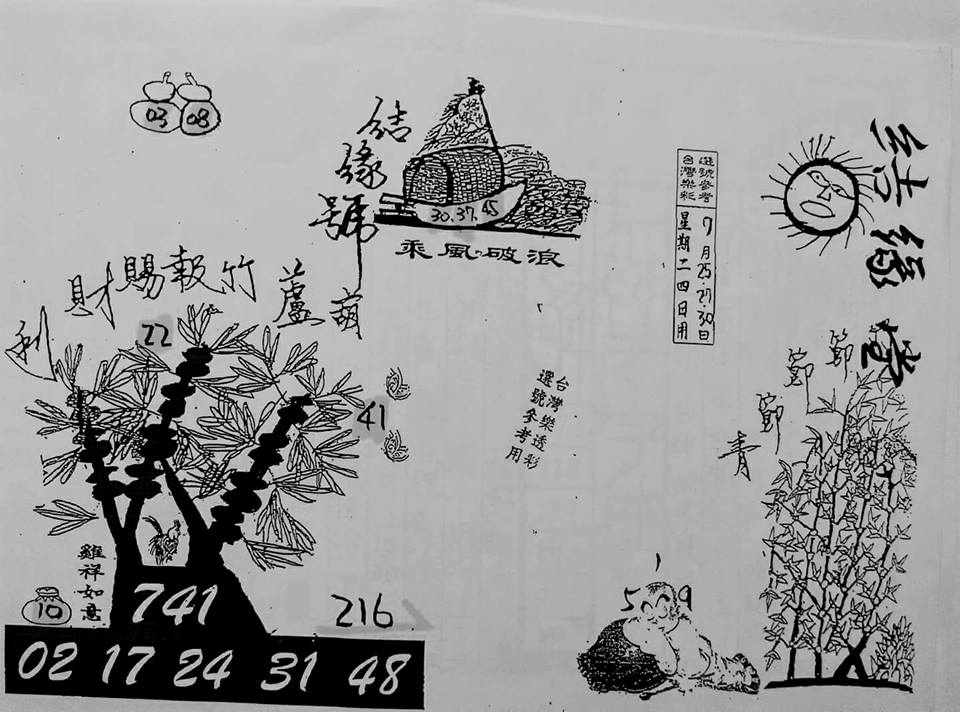 03 08
結緣號
30.37.45
乘風破浪
選號參考
台灣樂彩
7月25.27.30日
星期二四日用
結緣堂
葫蘆竹報賜財利
22
41
台灣樂透彩
選號參考用
節節節青
雞祥如意
10
741
216
5 9
02 17 24 31 48